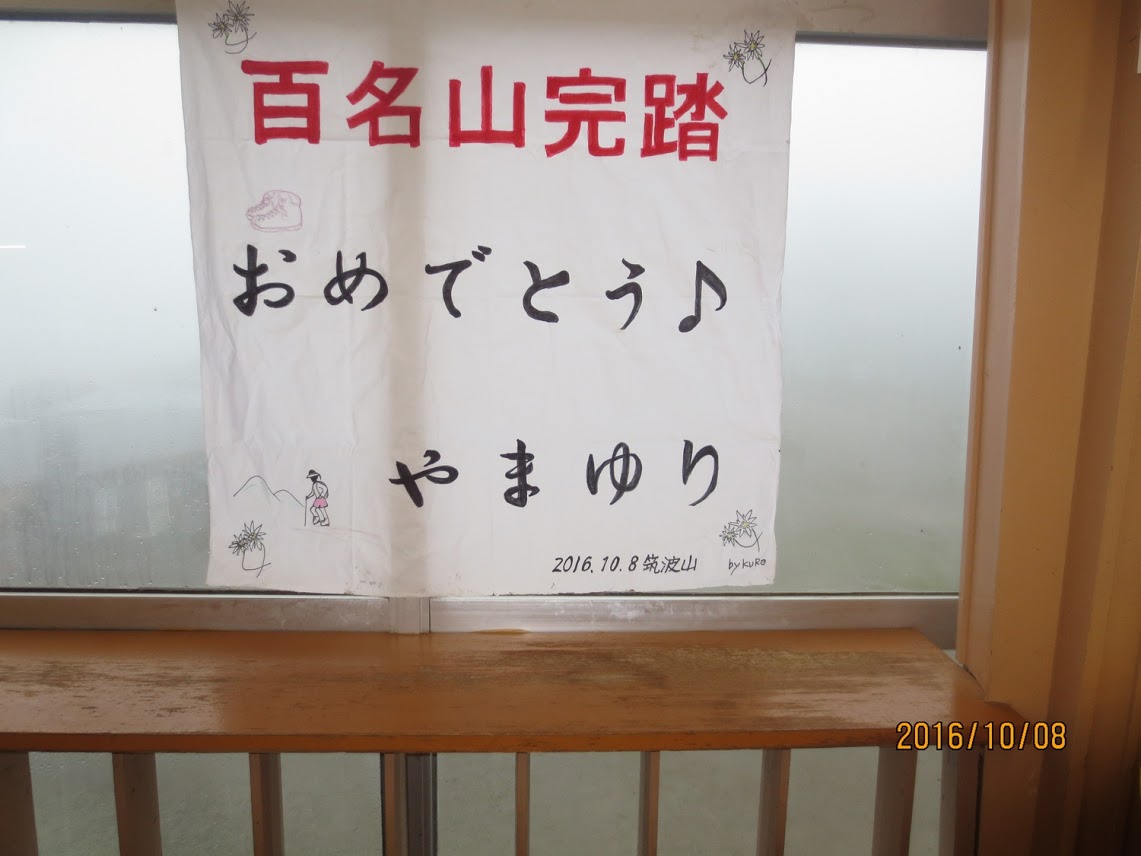 百名山完踏
おめでとう♪
やまゆり
2016.10.8 筑波山
by KURO
2016/10/08